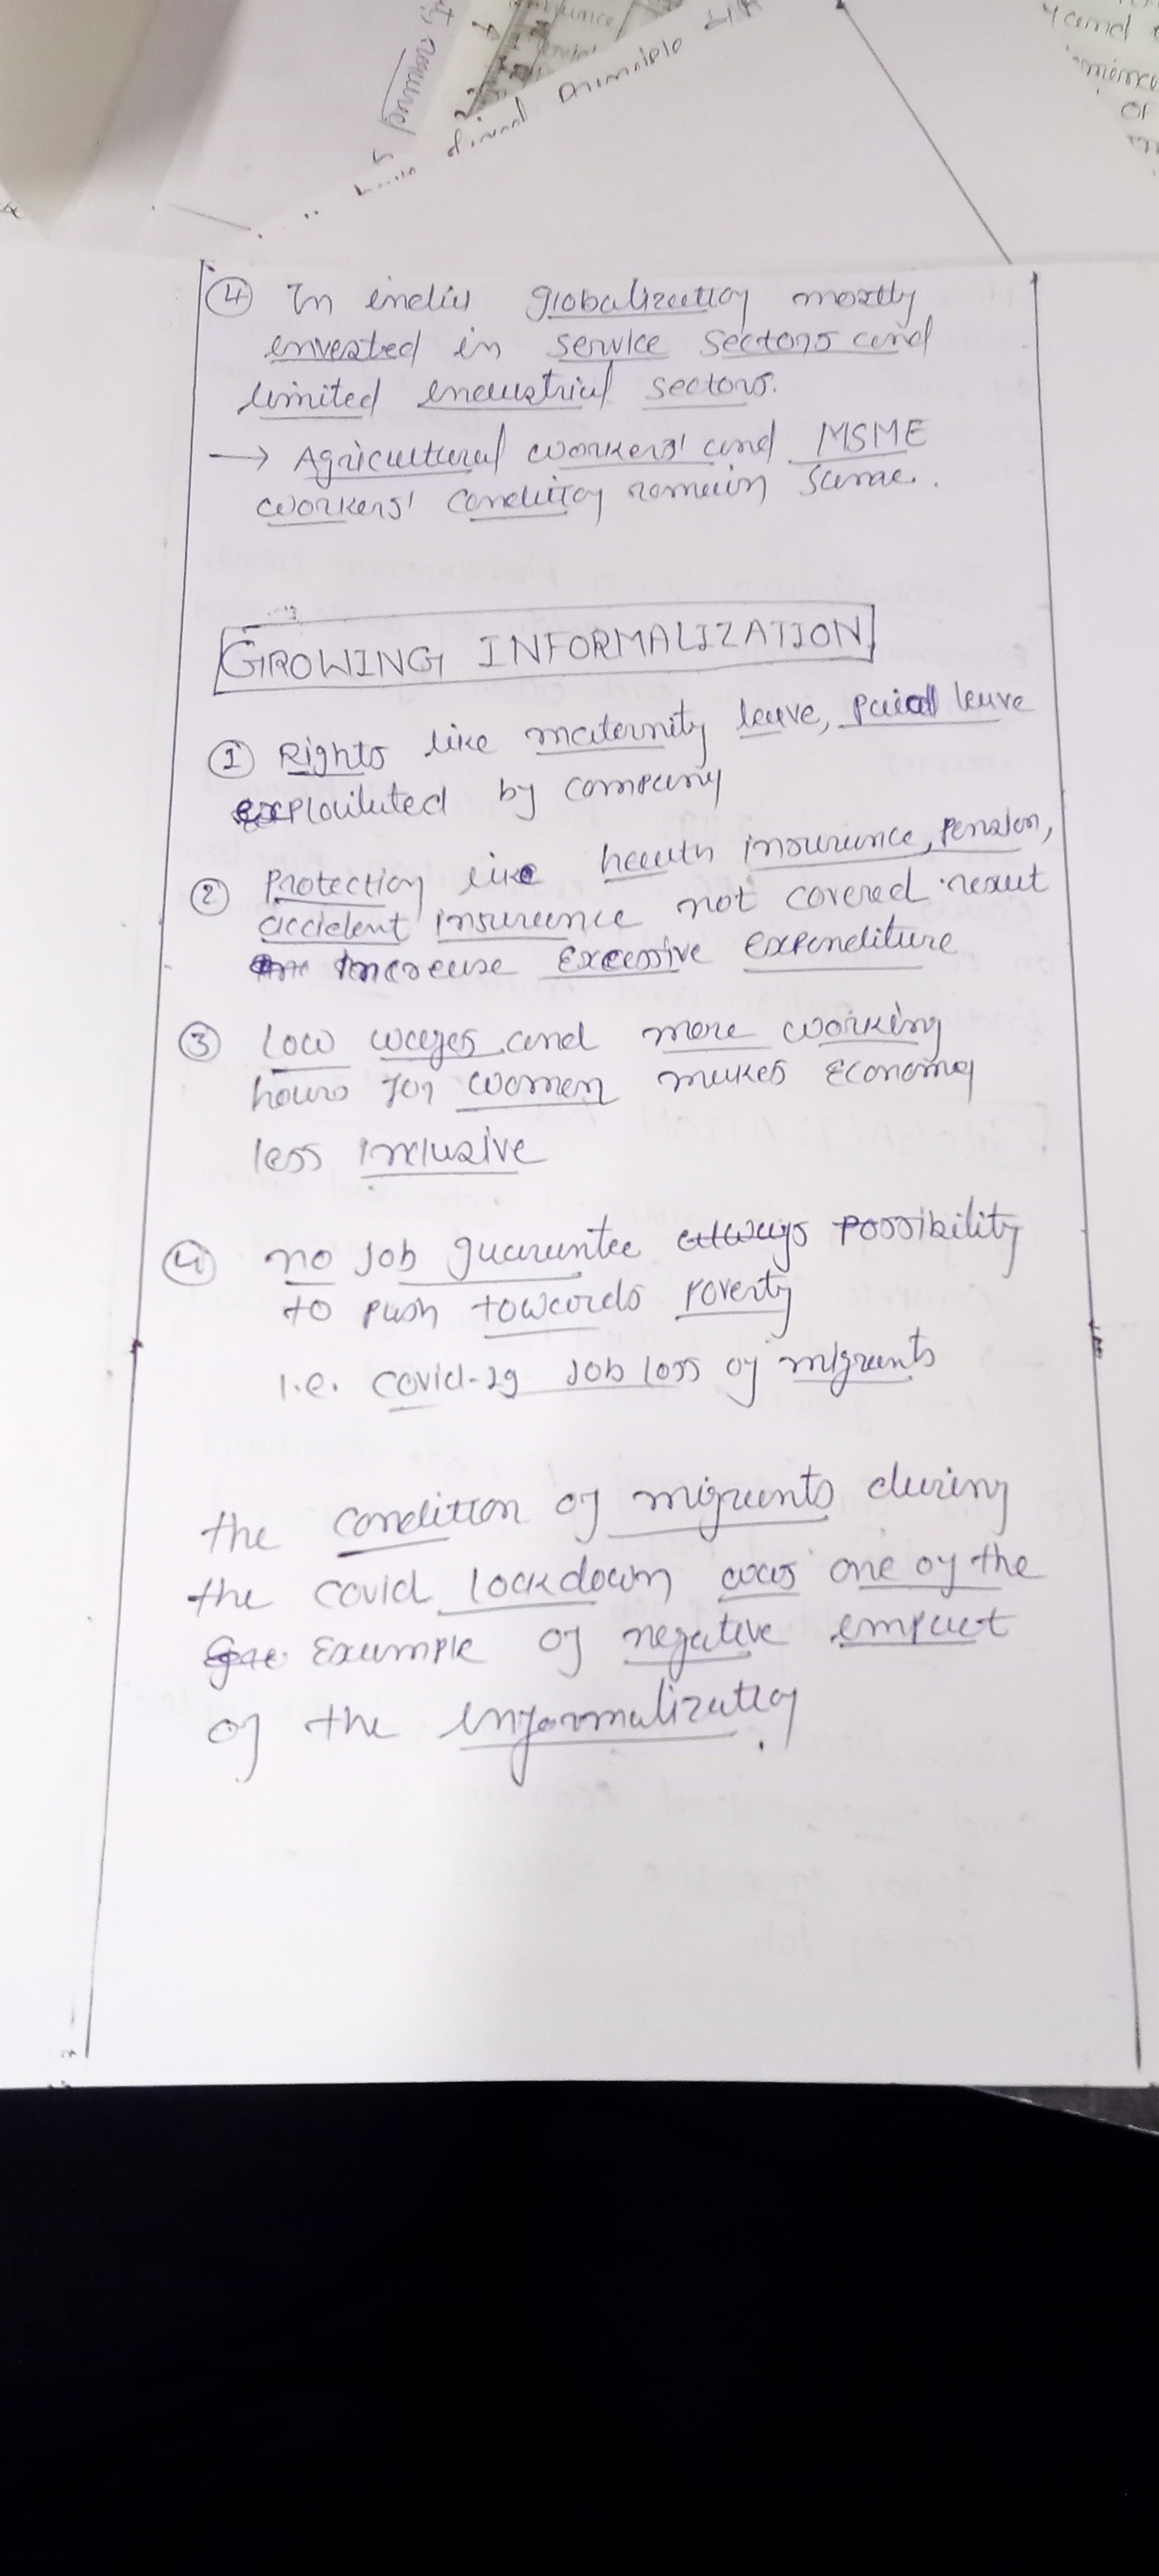 ④ In india globalization mostly
invested in service sectors and
limited industrial sectors.
→ Agricultural workers' and MSME
workers' condition remain same.
GROWING INFORMALIZATION
① Rights like maternity leave, paid leave
exploituted by company
② Protection like health insurance, pension,
accident insurance not covered result
increase Excessive Expenditure
③ Low wages and more working
hours for women makes Economy
less inclusive
④ no job guaruntee always possibility
to push towards poverty
i.e. covid-19 Job loss of migrants
the condition of migrants during
the covid lockdown was one of the
Example of negative impact
of the informalization.